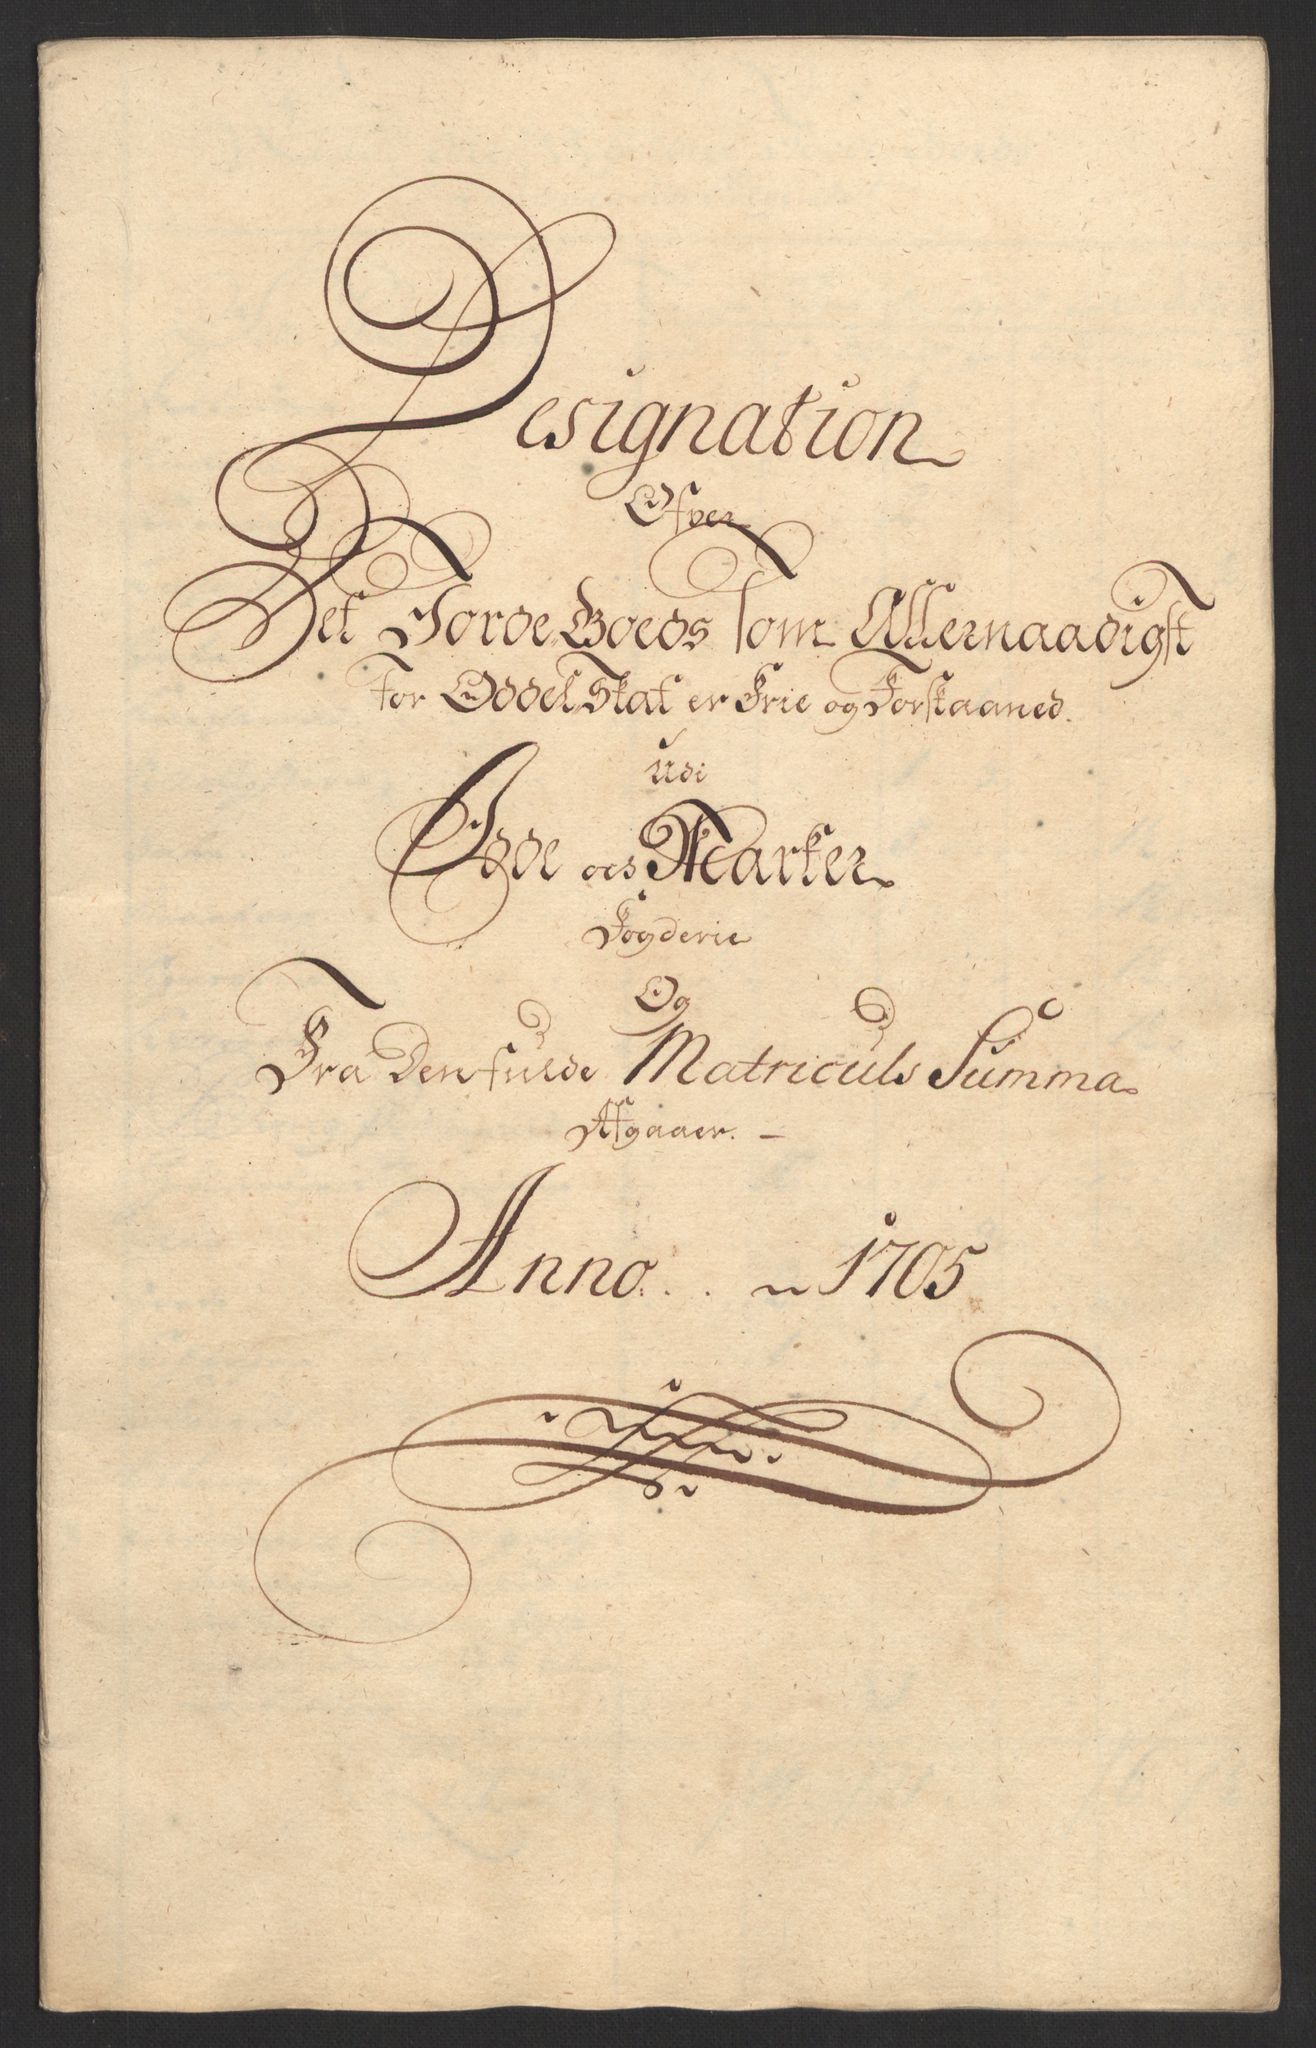 Designation
Ofver
Det Jorde Goeds som Allernaadigst
for Oddel Skat er Frie og Forskaaned.
Udi
Idde och Marker
Fogderie
Og
Fra Den fulde Matriculs Summa
Afgaaer. —
Anno. . . 1705